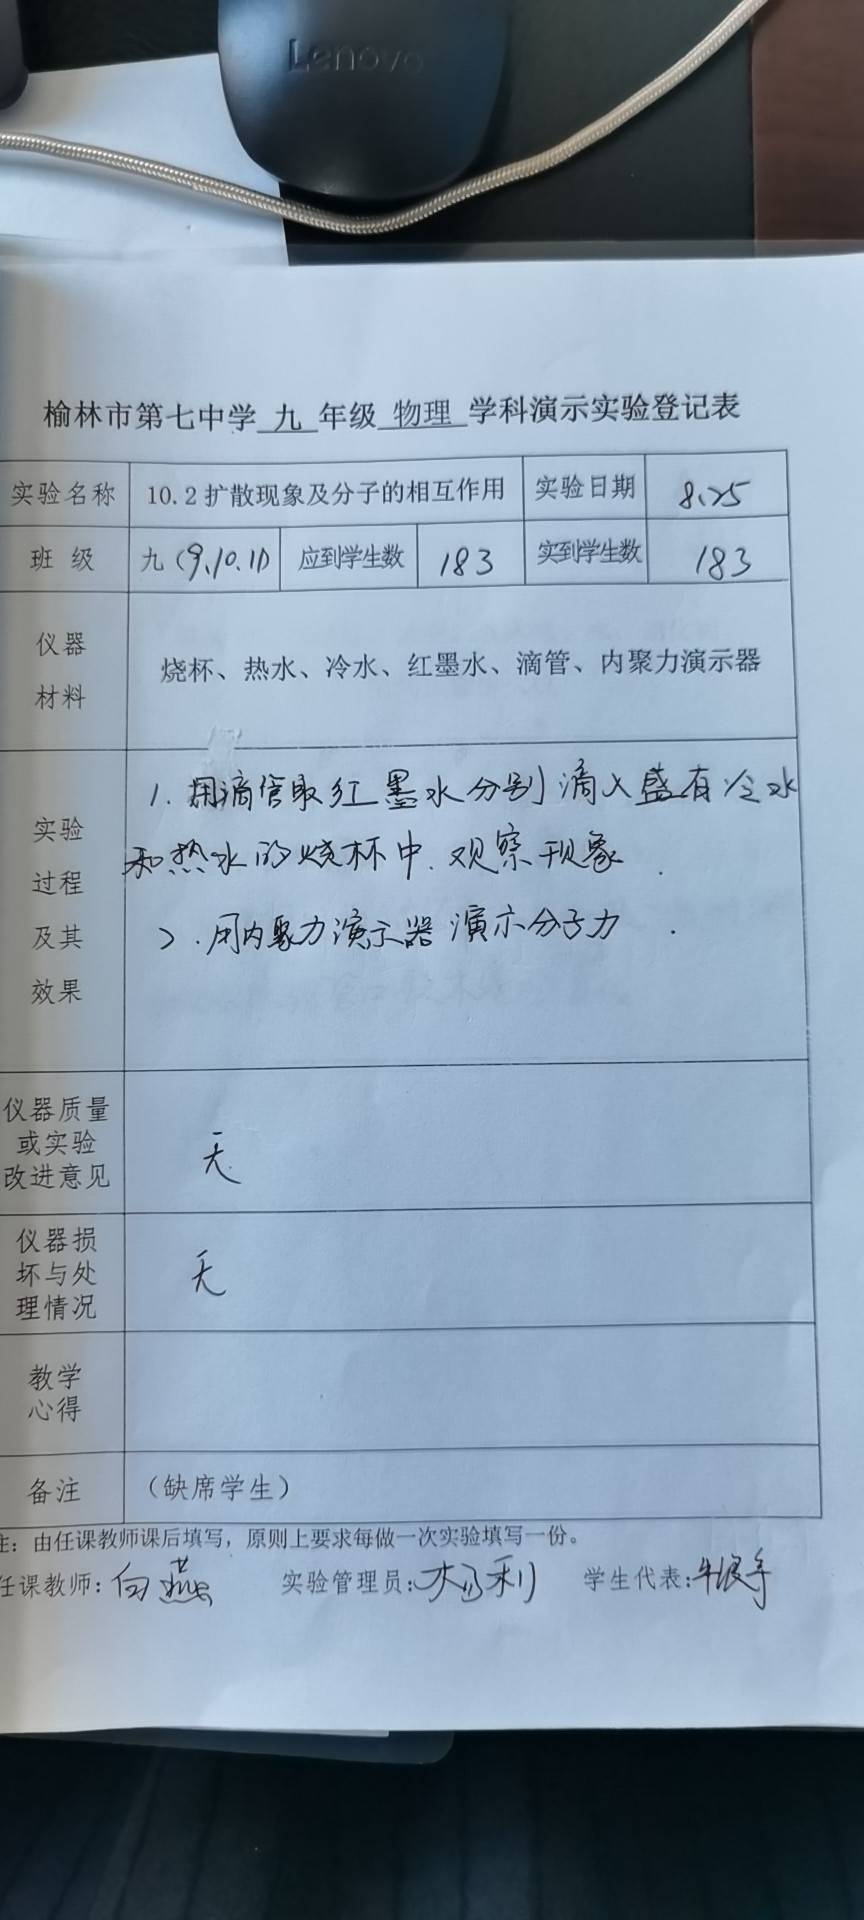 Lenovo
榆林市第七中学 九 年级 物理 学科演示实验登记表
实验名称 10.2扩散现象及分子的相互作用 实验日期 8.25
班 级 九(9、10、11) 应到学生数 183 实到学生数 183
仪器
材料
烧杯、热水、冷水、红墨水、滴管、内聚力演示器
实验
过程
及其
效果
1. 用滴管取红墨水分别滴入盛有冷水
和热水的烧杯中.观察现象.
2.用内聚力演示器演示分子力.
仪器质量
或实验
改进意见
无
仪器损
坏与处
理情况
无
教学
心得
备注 (缺席学生)
注:由任课教师课后填写,原则上要求每做一次实验填写一份。
任课教师:白燕 实验管理员:杨利 学生代表: